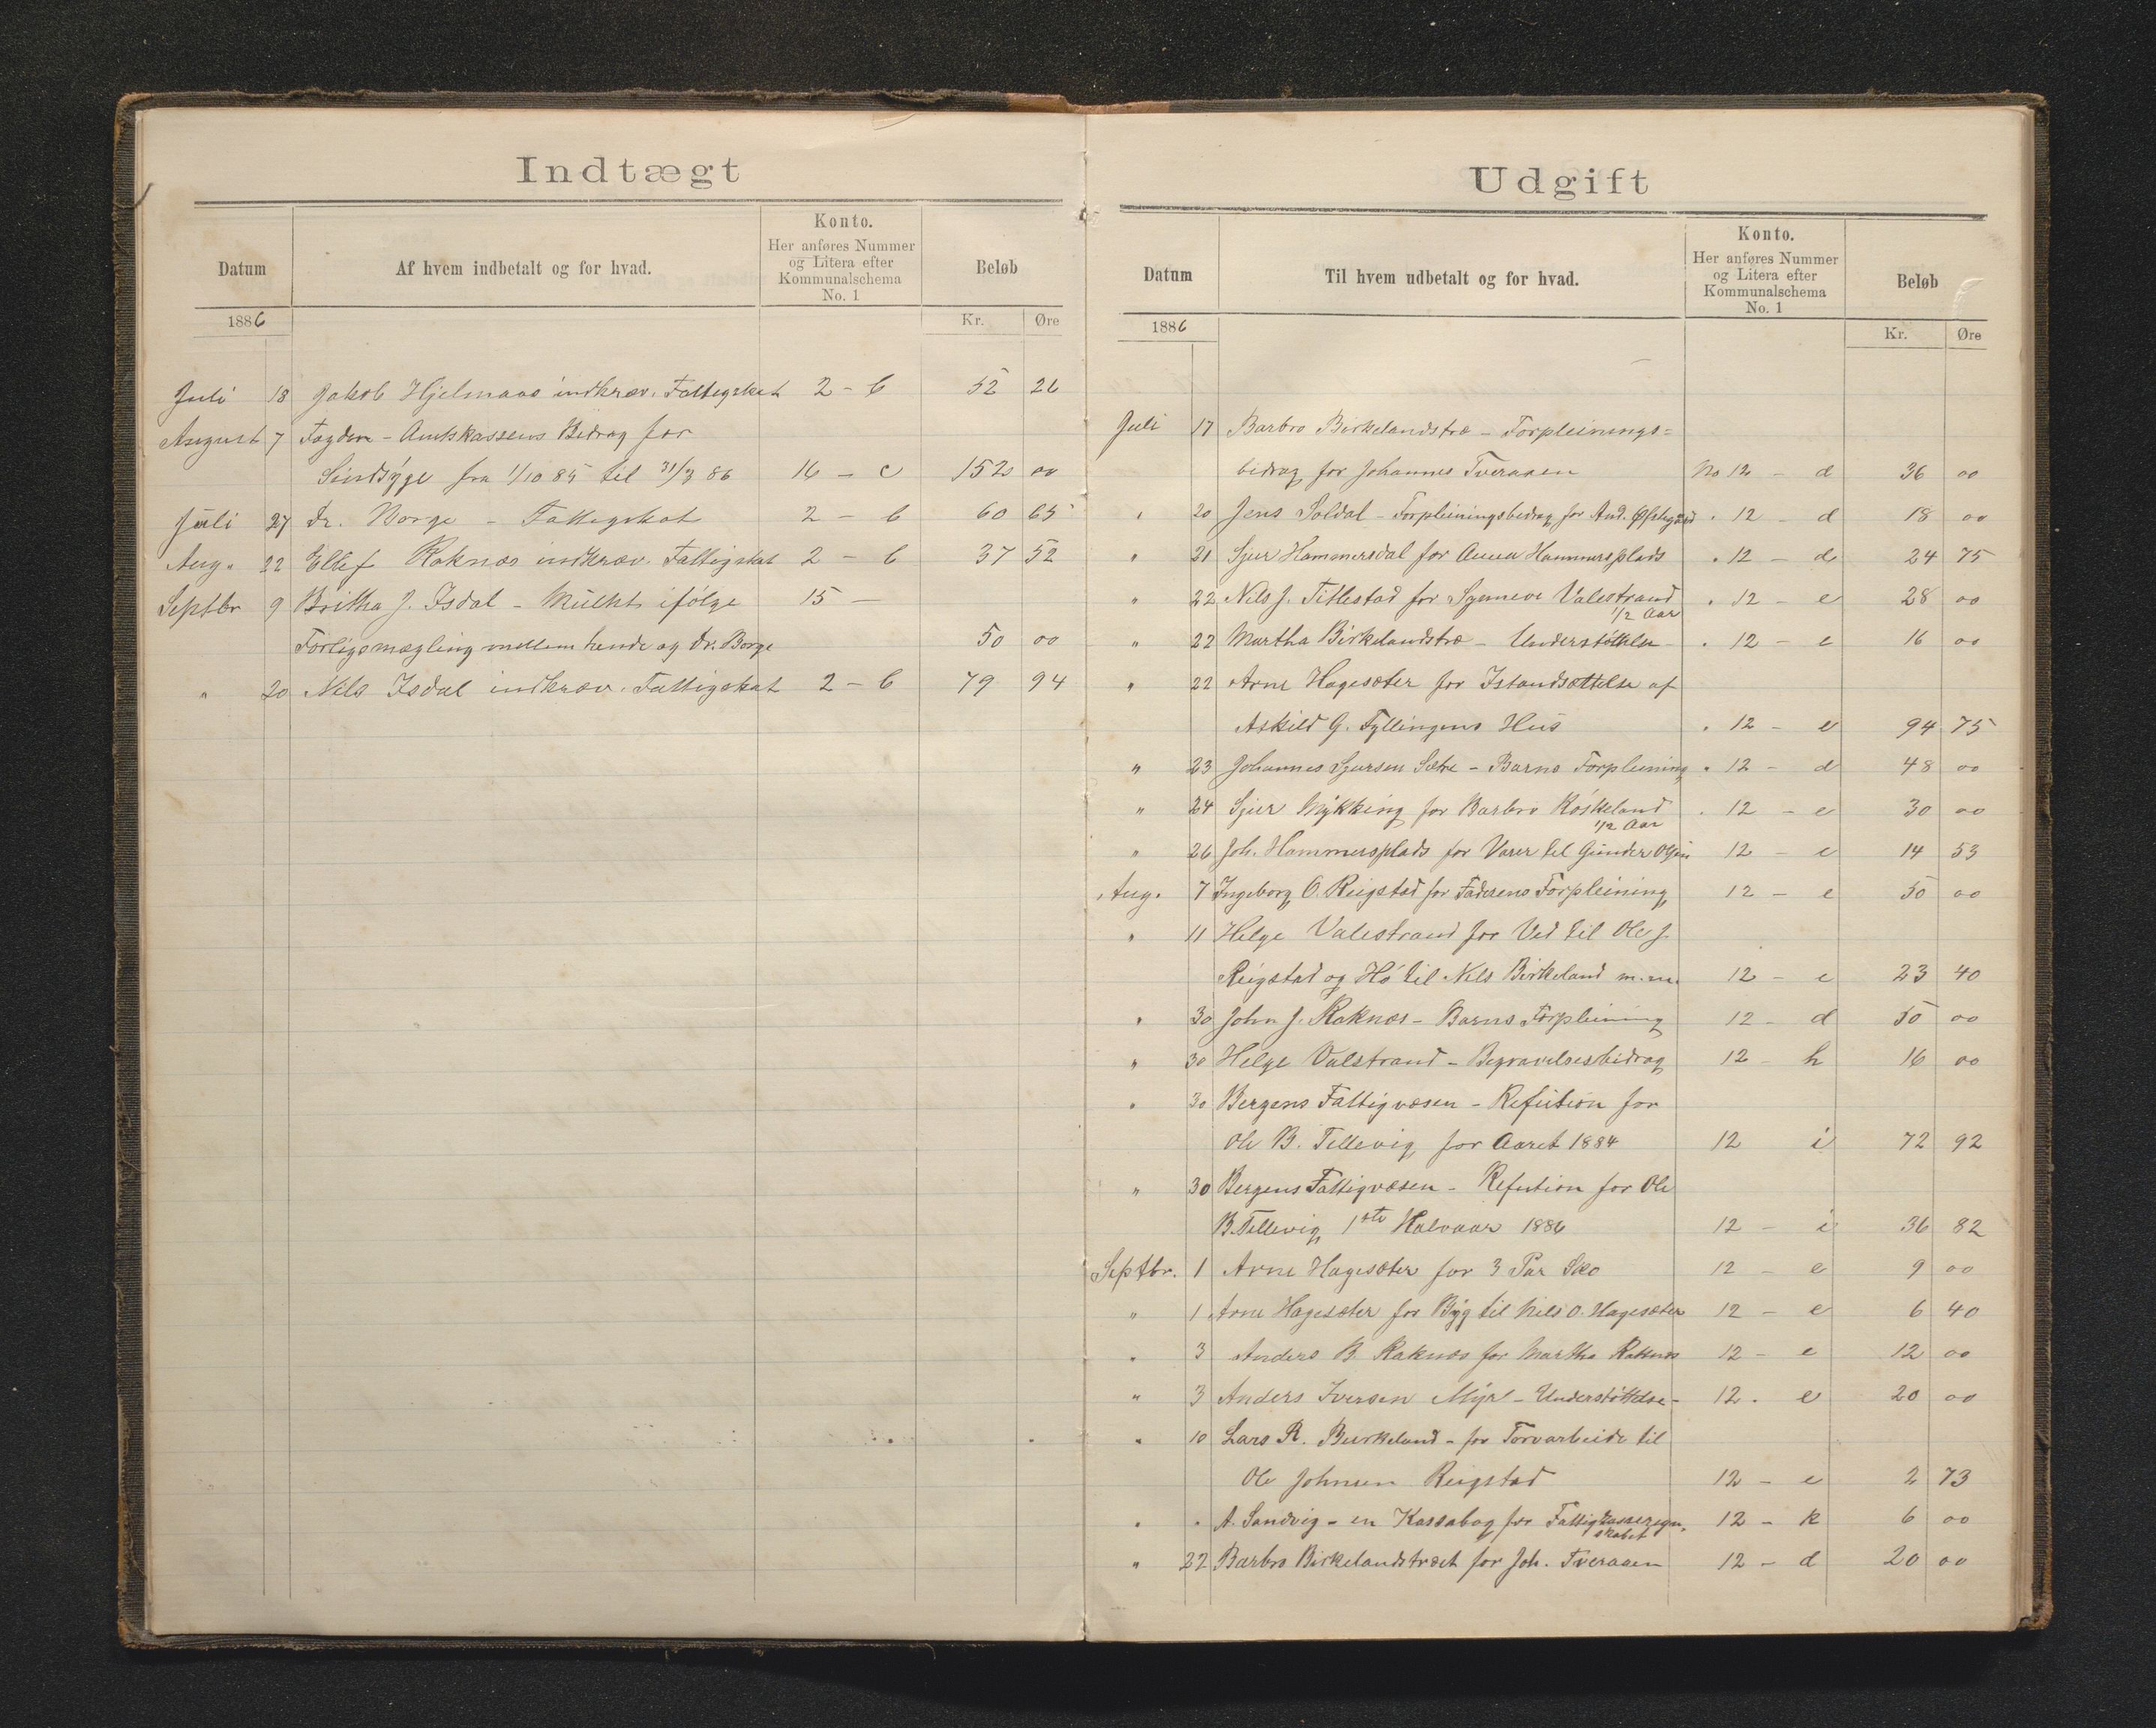 Indtægt
Datum
Af hvem indbetalt og for hvad.
Konto.
Her anføres Nummer
og Litera efter
Kommunalschema
No. 1
Beløb
1886
Kr. Øre
Juli 18 Jakob Hjelmaas indkræv. Fattigskat 2 - b 52 26
August 7 Fogden - Amtskassens Bidrag for
Sindsyge fra 1/10 85 til 31/3 86 16 - c 152 00
Juli 27 Dr. Borge - Fattigskat 2 - b 60 65
Aug. 22 Ellef Raknæs indkræv. Fattigskat 2 - b 37 52
Septbr 9 Britha J. Isdal - Mulkt ifølge 15 -
Forligsmægling mellem hende og Dr. Borge 50 00
" 20 Nils Isdal indkræv. Fattigskat 2 - b 79 94
Udgift
Datum
Til hvem udbetalt og for hvad.
Konto.
Her anføres Nummer
og Litera efter
Kommunalschema
No. 1
Beløb
1886
Kr. Øre
Juli 17 Barbro Birkelandstræ - Forpleinings=
bidrag for Johannes Tveraaen No 12 - d 36 00
" 20 Jens Soldal - Forpleiningsbidrag for And. " 12 - d 18 00
" 21 Sjur Hammersdal for Anna Hammersplads " 12 - d 24 75
" 22 Nils J. Titlestad for Synneve Valestrand " 12 - e 28 00
1/2 Aar
" 22 Martha Birkelandstræ - Understöttelse - " 12 - e 16 00
" 22 Arne Hagesæter for Istandsættelse af
Askild G. Fyllingens Hus " 12 - e 94 75
" 23 Johannes Sjursen Sætre - Barns Forpleining " 12 - d 48 00
" 24 Sjur Mykking for Barbro Röskeland " 12 - e 30 00
1/2 Aar
" 26 Joh. Hammersplads for Varer til Gunder Olsen 12 - e 14 53
Aug. 7 Ingeborg O. Reigstad for Faderens Forpleining 12 - e 50 00
" 11 Helge Valestrand for Ved til Ole J.
Reigstad og Hö til Nils Birkeland m.m. 12 - e 23 40
" 30 John J. Raknæs - Barns Forpleining 12 - d 50 00
" 30 Helge Valstrand - Begravelsesbidrag 12 - h 16 00
" 30 Bergens Fattigvæsen - Refution for
Ole B. Tellevig for Aaret 1884 12 i 72 92
" 30 Bergens Fattigvæsen - Refution for Ole
B. Tellevig 1ste Halvaar 1886 12 - i 36 82
Septbr. 1 Arne Hagesæter for 3 Par Sko 12 - e 9 00
" 1 Arne Hagesæter for Byg til Nils O. Hagesæter 12 - e 6 40
" 3 Anders B. Raknæs for Martha Raknæs 12 - e 12 00
" 3 Anders Iversen Myr - Understöttelse - 12 . e 20 00
" 10 Lars R. Birkeland - for Torvarbeide til
Ole Johnsen Reigstad 12 - e 2 73
" " A. Sandvig - en Kassabog for Fattigkasseregn. 12 - k 6 00
skabet
" 22 Barbro Birkelandstræet for Joh. Tveraaen 12 - d 20 00